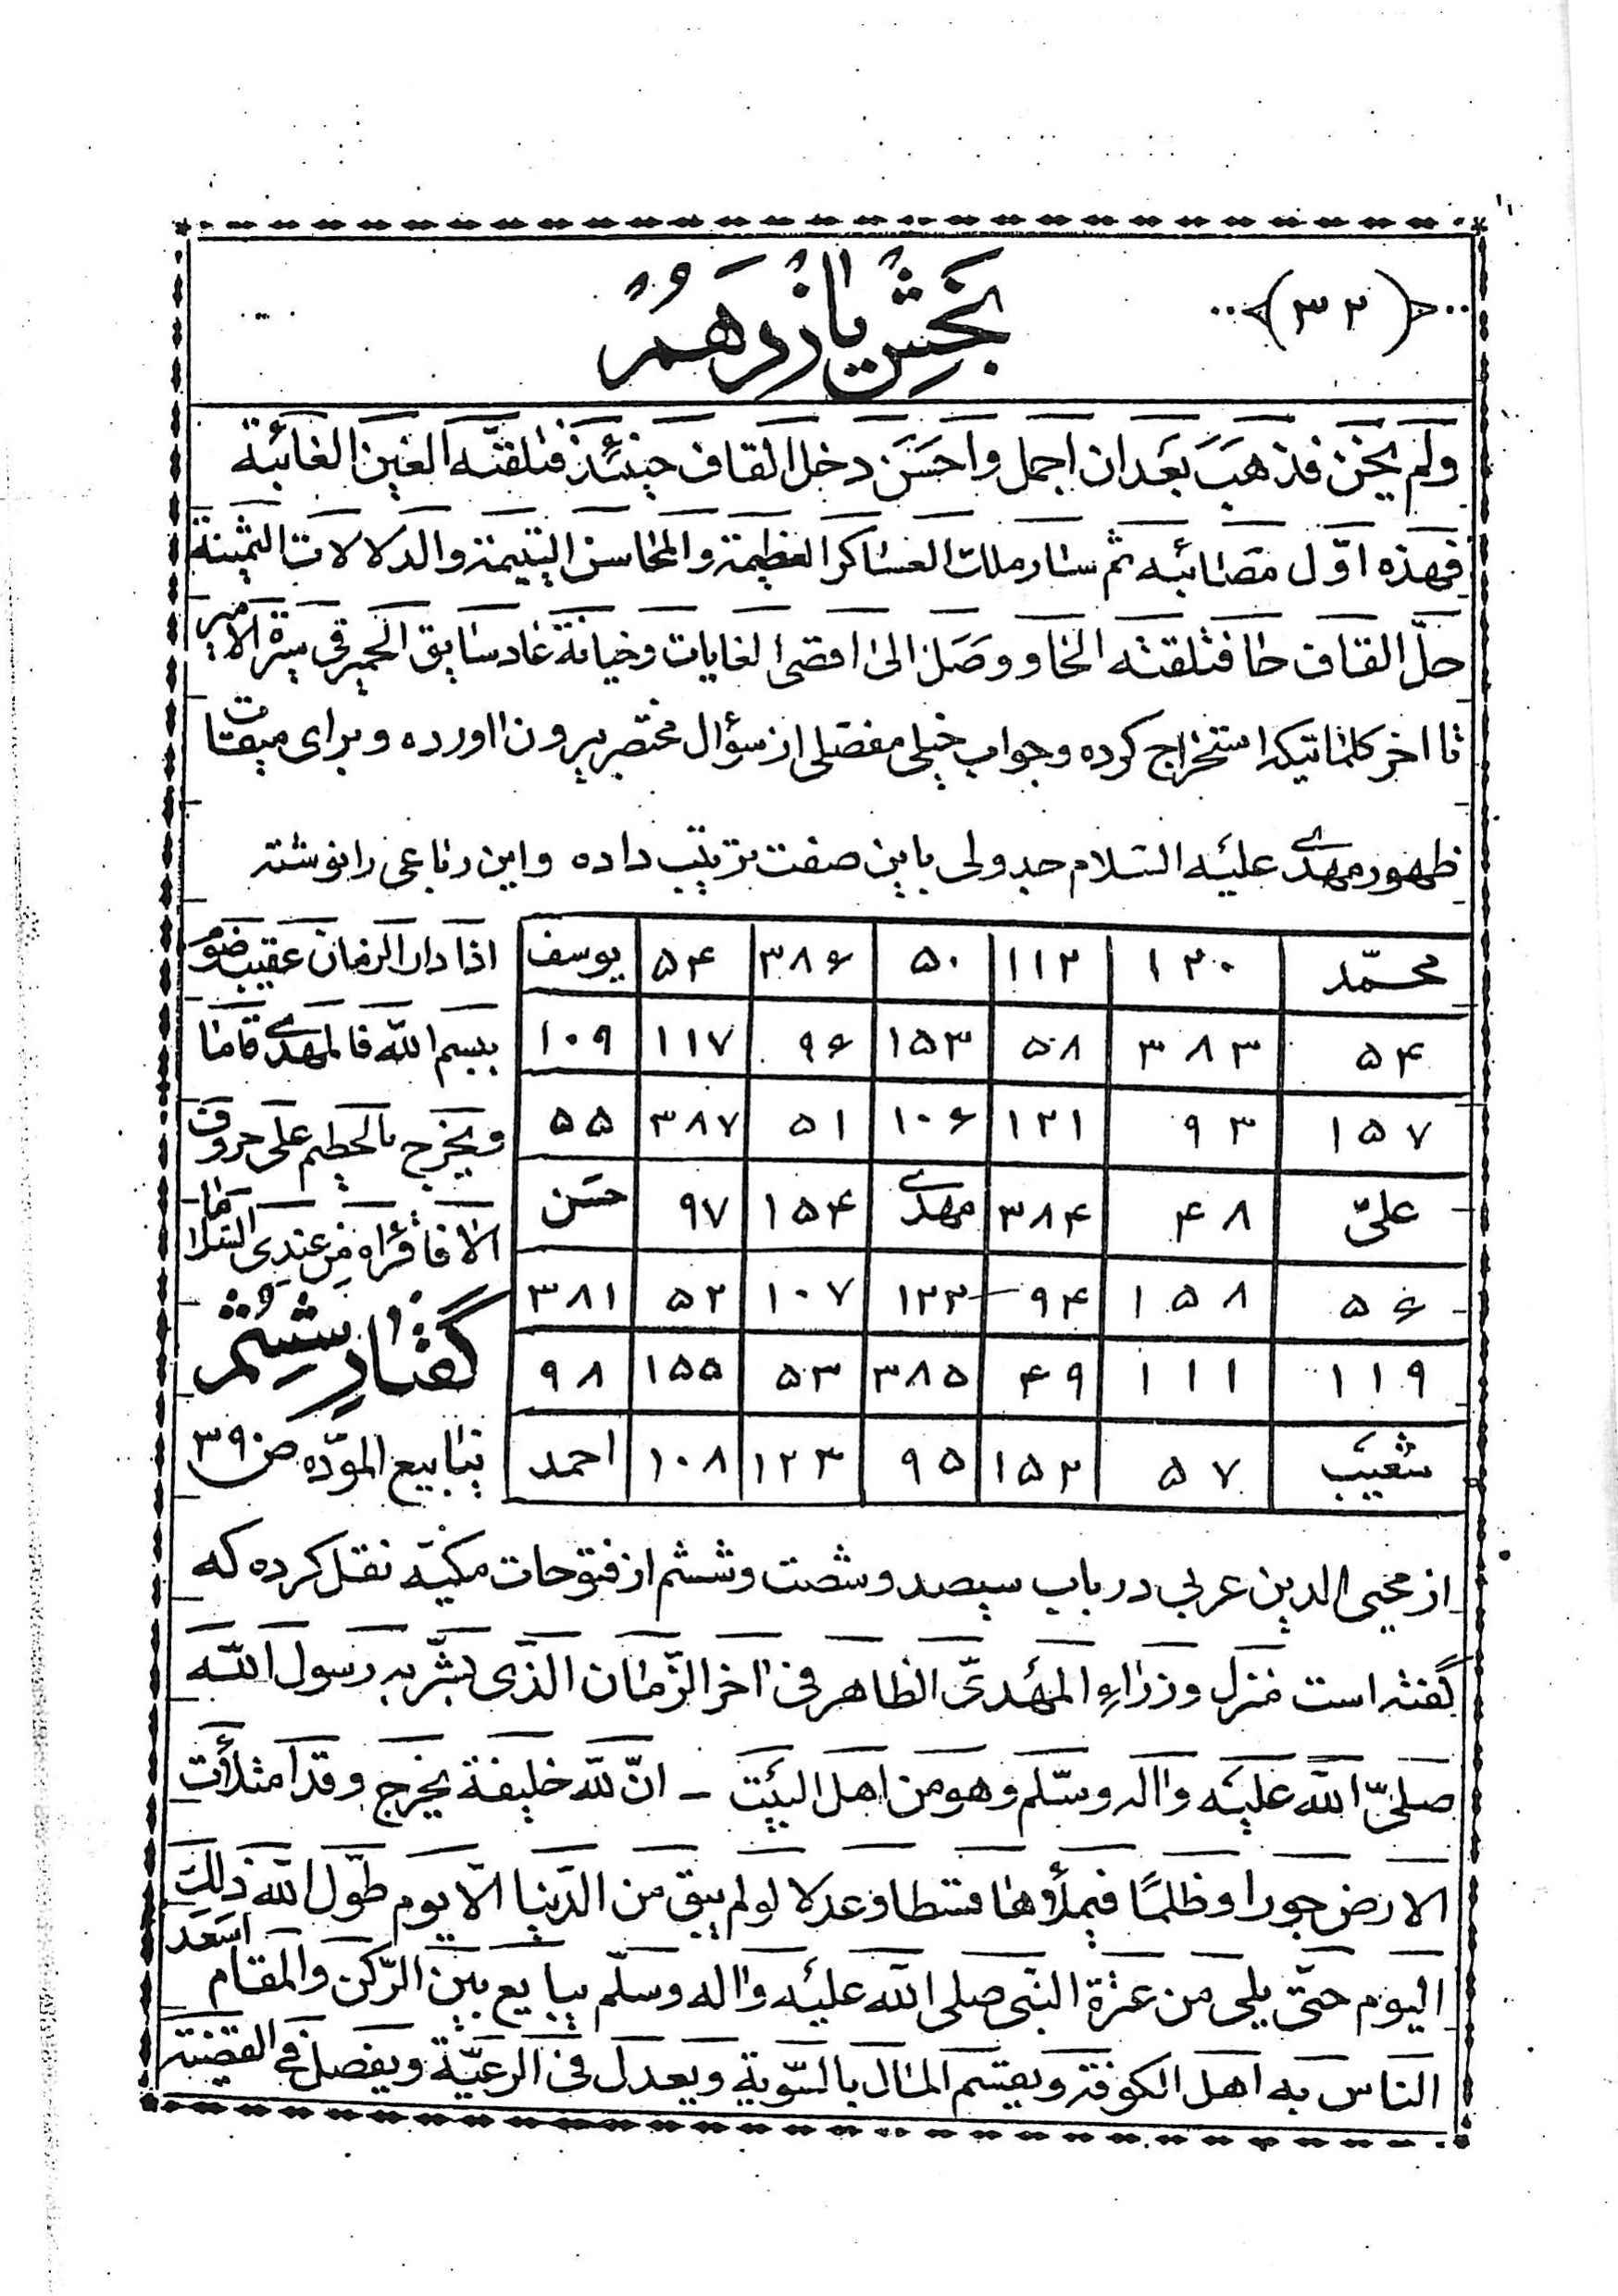 (۳۲)
بخش یازدهم
ولم یخن فذهب بعد ان اجمل واحسن دخل القاف حینئذ فتلقته العین الغائبة
فهذه اوّل مصائبه ثم سار ملک العساکر العظیمة والمحاسن الیتیمة والدلالات الثمینة
حلّ القاف خا فتلقته الخاو وصل الی اقصی الغایات وخیانة عاد سابق الحمیر فی سرة الامیر
تا اخر کلماتیکه استخراج کرده وجواب خیلی مفصلی از سؤال مختصر بیرون آورده وبرای میقات
ظهور مهدی علیه السلام جدولی باین صفت ترتیب داده واین رباعی را نوشته
محمّد ۱۲۰ ۱۱۲ ۵۰ ۳۸۶ ۵۴ یوسف
۵۴ ۳۸۳ ۵۸ ۱۵۳ ۹۶ ۱۱۷ ۱۰۹
۱۵۷ ۹۳ ۱۲۱ ۱۰۶ ۵۱ ۳۸۷ ۵۵
علیّ ۴۸ ۳۸۴ مهدی ۱۵۴ ۹۷ حسن
۵۶ ۱۵۸ ۹۴ ۱۲۲ ۱۰۷ ۵۲ ۳۸۱
۱۱۹ ۱۱۱ ۴۹ ۳۸۵ ۵۳ ۱۵۵ ۹۸
شعیب ۵۷ ۱۵۲ ۹۵ ۱۲۳ ۱۰۸ احمد
اذا دار الزمان عقیب صوم
ببسم الله فالمهدی قاما
ویخرج بالحطیم علی حروف
الا فاقراه من عندی السلاما
گفتار ششم
ینابیع المودّه ص ۳۹۰
از محیی الدین عربی در باب سیصد وشصت وششم از فتوحات مکیّه نقل کرده که
گفته است منزل وزراءِ المهدیّ الظاهر فی اخر الزّمان الذّی بشّر به رسول الله
صلّی الله علیه واله وسلّم وهو من اهل البیت - انّ لله خلیفة یخرج وقد امتلأت
الارض جورا وظلمًا فیملأوها قسطا وعدلا لو لم یبق من الدّنیا الّا یوم طوّل الله ذلک
الیوم حتّی یلی من عترة النّبی صلی الله علیه واله وسلّم یبایع بین الرّکن والمقام اسعد
الناس به اهل الکوفة ویقسم المال بالسّویة ویعدل فی الرعیّة ویفصل فی القضیة